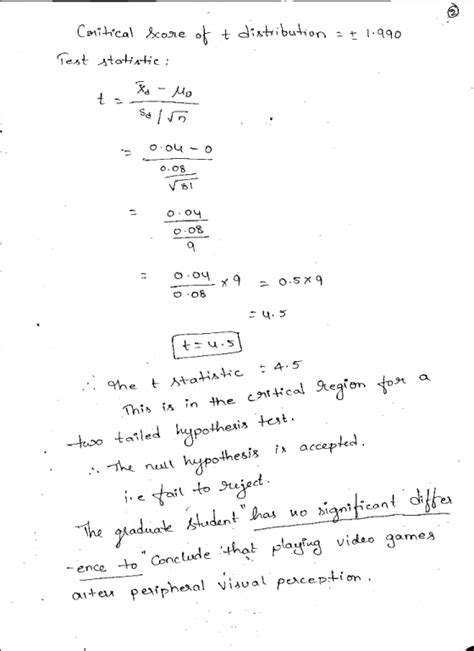 ②
Critical Score of t distribution = ± 1.990
Test statistic :
t = x̄d - μ0
sd / √n
= 0.04 - 0
0.08
√81
= 0.04
0.08
9
= 0.04 × 9 = 0.5 × 9
0.08
= 4.5
t = 4.5
∴ The t statistic = 4.5
This is in the critical region for a
two tailed hypothesis test.
∴ The null hypothesis is accepted.
i.e fail to reject.
The graduate student "has no significant differ
-ence to" Conclude that playing video games
alters peripheral visual perception.